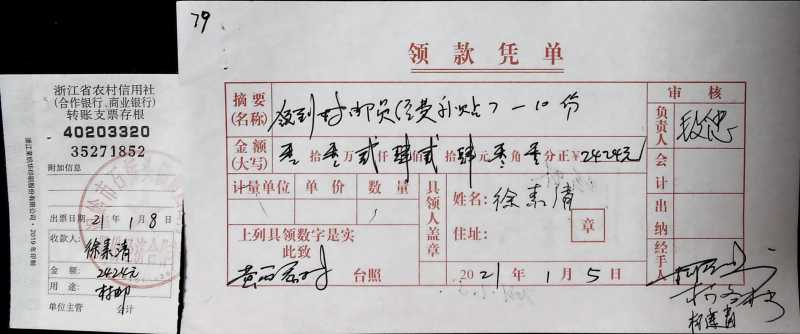 79
浙江省农村信用社
(合作银行、商业银行)
转账支票存根
40203320
35271852
附加信息
出票日期 21 年 1 月 8 日
收款人:
徐素清
金 额: 2424元
用 途: 村邮
单位主管 会计
领款凭单
摘要
(名称)
领到村邮员经费补贴7-10份
金额
(大写)
拾 万 贰 仟 肆 佰 贰 拾 肆 元 角 分正¥2424元
计量单位 单价 数量
上列具领数字是实
此致
台照
具领人盖章
姓名: 徐素清
住址:
章
2021 年 1 月 5 日
审核
负责人
会计
出纳
经手人